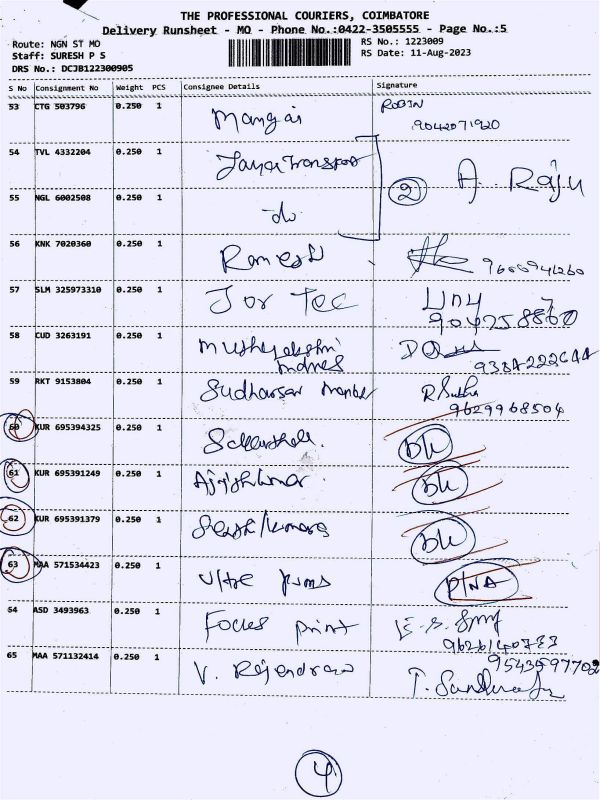 THE PROFESSIONAL COURIERS, COIMBATORE
Delivery Runsheet - MQ - Phone No.:0422-3505555 - Page No.:5
Route: NGN ST MO RS No.: 1223009
Staff: SURESH P S RS Date: 11-Aug-2023
DRS No.: DCJB122300905
S No Consignment No Weight PCS Consignee Details Signature
53 CTG 503796 0.250 1 Mangai ROBIN
9042071920
54 TVL 4332204 0.250 1 Jaya Transport
2 A. Raju
55 NGL 6002508 0.250 1 do
56 KNK 7020360 0.250 1 Ramesh
57 SLM 325973310 0.250 1 Jor Tec
58 CUD 3263191 0.250 1
59 RKT 9153804 0.250 1 Sudharsar
9629968504
60 KUR 695394325 0.250 1
61 KUR 695391249 0.250 1 Ajishkumar
62 KUR 695391379 0.250 1
63 MAA 571534423 0.250 1
64 ASD 3493963 0.250 1 Focus print
65 MAA 571132414 0.250 1 V. Rajendran
4